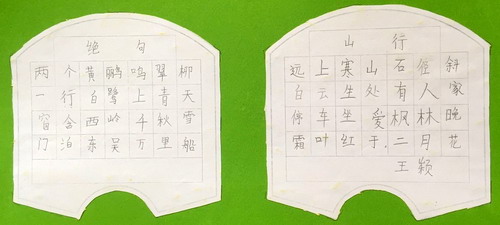 绝句
两个黄鹂鸣翠柳
一行白鹭上青天
窗含西岭千秋雪
门泊东吴万里船
山行
远上寒山石径斜
白云生处有人家
停车坐爱枫林晚
霜叶红于二月花
王颖